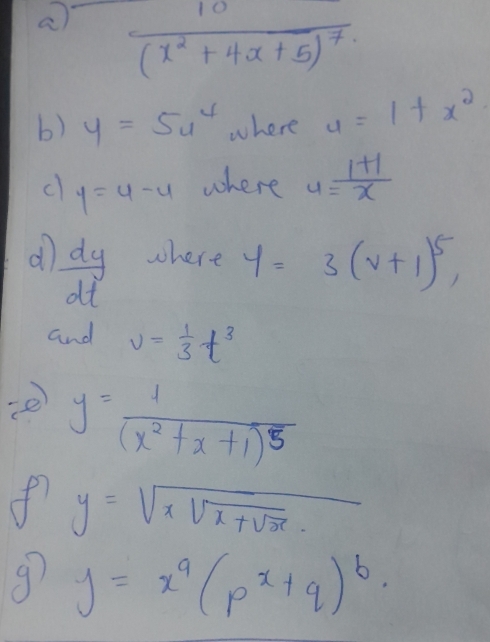 a) 10/(x² + 4x + 5)⁷.
b) y = 5u⁴ where u = 1 + x².
c) y = u - u where u = 1+1/x
d) dy/dt where y = 3(v + 1)⁵,
and v = 1/3 t³
e) y = 1/(x² + x + 1)5
f) y = √(x √(x + √x)).
g) y = xᵃ (pˣ + q)ᵇ.